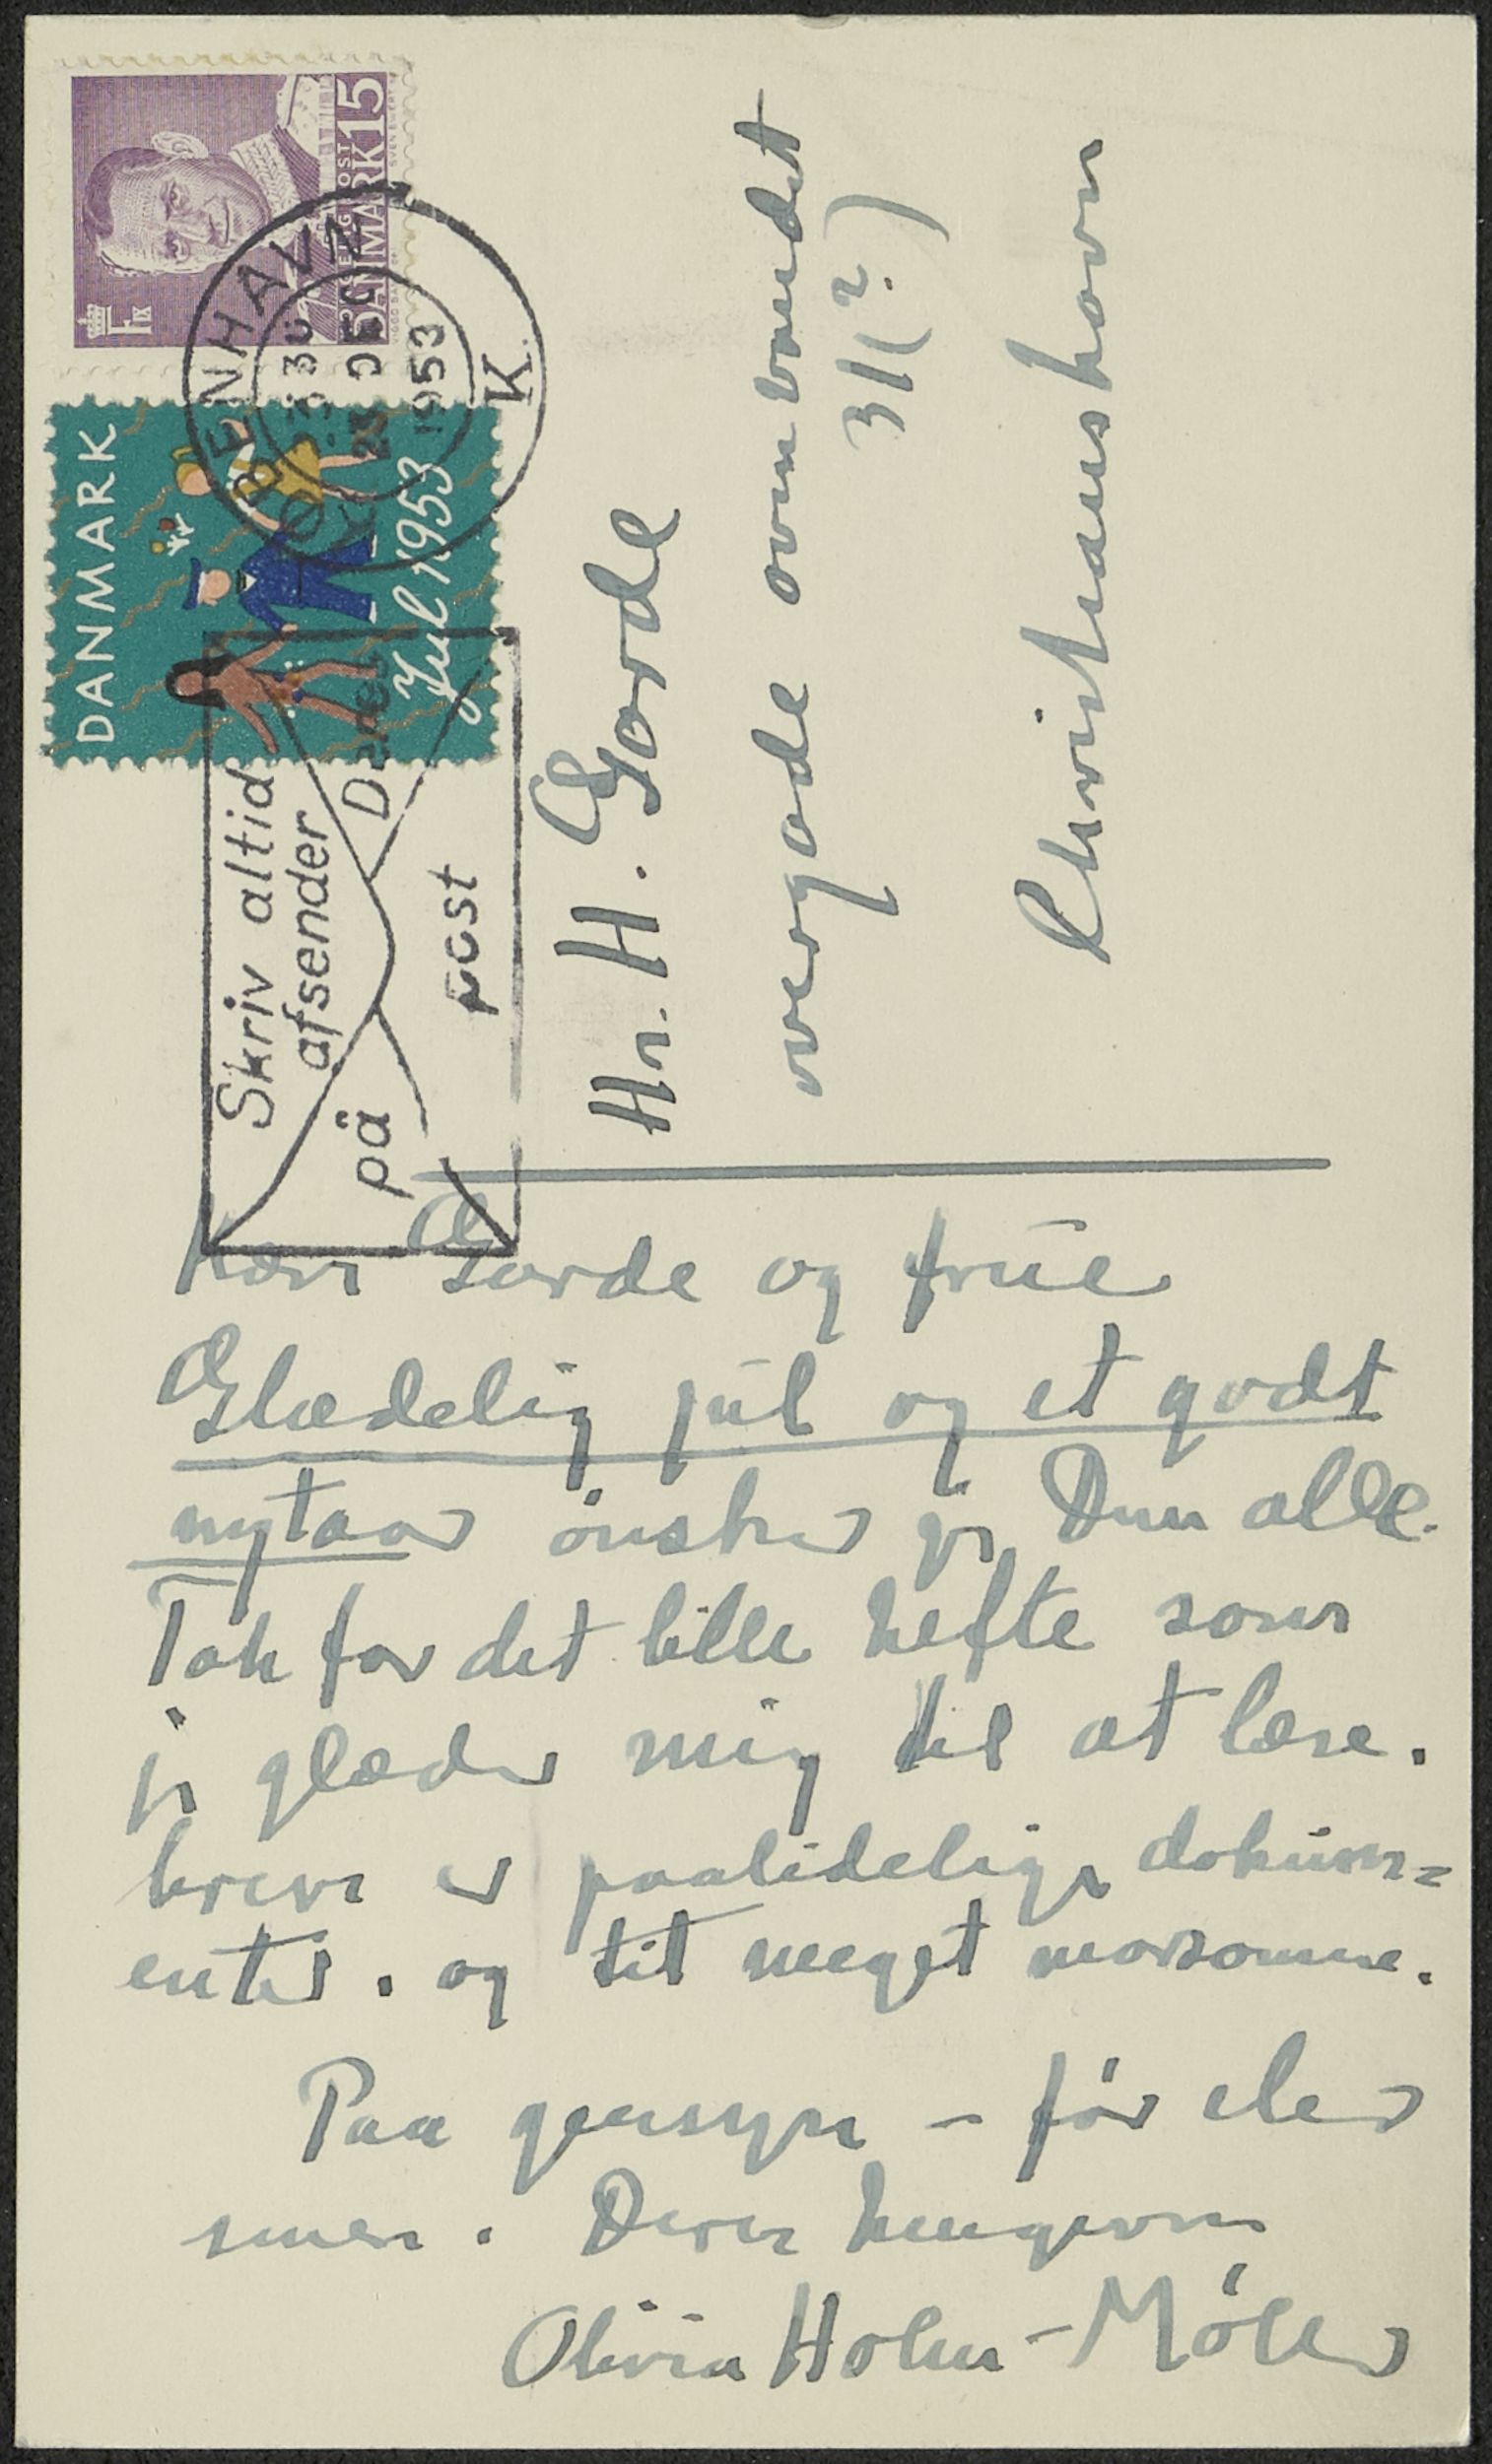 DANMARK 15
KØBENHAVN
K.
23 DEC
1953
DANMARK
Jul 1953
Skriv altid
afsender
på Deres
post
Hr. H. Garde
overgade ovenvandet
31(?)
Christianshavn
Kære Garde og frue
Glædelig jul og et godt
nytaar ønsker jeg Dem alle.
Tak for det lille hefte som
jeg glæder mig til at læse.
breve er paalidelige dokum=
enter. og tit meget morsomme.
Paa gensyn – før eller
senere. Deres hengivne
Olivia Holm-Møller